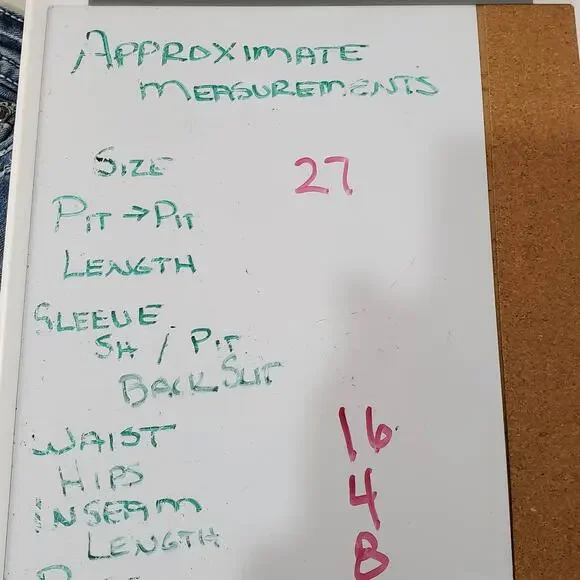 APPROXIMATE
MEASUREMENTS
SIZE 27
PIT → PIT
LENGTH
SLEEVE
SH / PIT
BACK SLIT
WAIST 16
HIPS
INSEAM 4
LENGTH 8